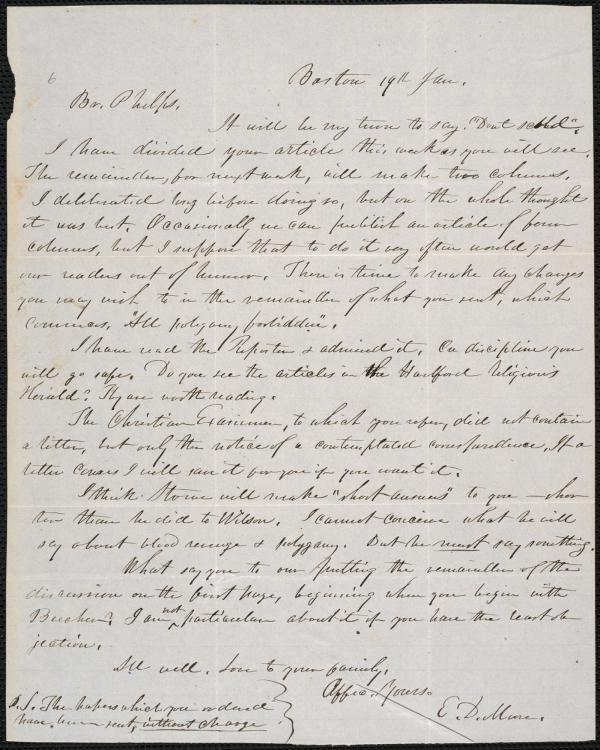 6
Boston 19th Jan.
Br. Phelps,
It will be my turn to say: "Dont scold".
I have divided your article this week as you will see.
The remainder, for next week, will make two columns.
I deliberated long before doing so, but on the whole thought
it was best. Occasionally we can publish an article of four
columns, but I suppose that to do it very often would get
our readers out of humor. There is time to make any changes
you may wish to in the remainder of what you sent, which
commences, "All polygamy forbidden".
I have read the Reporter & admired it. On discipline you
will go safe. Do you see the articles in the Hartford Religious
Herald? They are worth reading.
The Christian Examiner, to which you refer, did not contain
a letter, but only the notice of a contemplated correspondence. If a
letter comes I will save it for you if you want it.
I think Stowe will make "short answers" to you — shor
ter than he did to Wilson. I cannot conceive what he will
say about blood revenge & polygamy. But he must say something.
What say you to our putting the remainder of the
discussion on the first page, beginning when you begin with
Beecher? I am not particular about it if you have the least ob
jection.
All well. Love to your family.
Affec. Yours.
E. D. Moore.
P.S. The papers which you ordered
have been sent, without charge